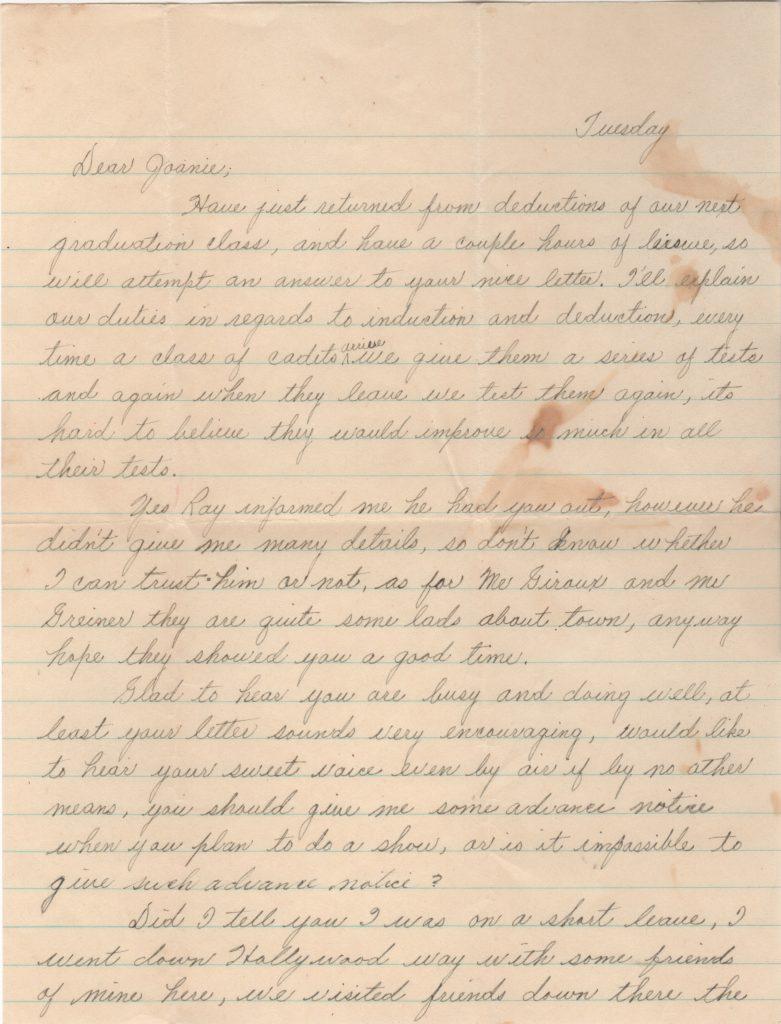 Tuesday
Dear Joanie;
Have just returned from deductions of our next
graduation class, and have a couple hours of liesue, so
will attempt an answer to your nice letter. I'll explain
our duties in regards to induction and deduction, every
time a class of cadits arrive we give them a series of tests
and again when they leave we test them again, its
hard to believe they would improve so much in all
their tests.
Yes Ray informed me he had you out, however he
didn't give me many details, so don't know whether
I can trust him or not, as for Mc Giroux and Mc
Greiner they are quite some lads about town, anyway
hope they showed you a good time.
Glad to hear you are busy and doing well, at
least your letter sounds very encouraging, would like
to hear your sweet voice even by air if by no other
means, you should give me some advance notice
when you plan to do a show, or is it impossible to
give such advance notice?
Did I tell you I was on a short leave, I
went down Hollywood way with some friends
of mine here, we visited friends down there the